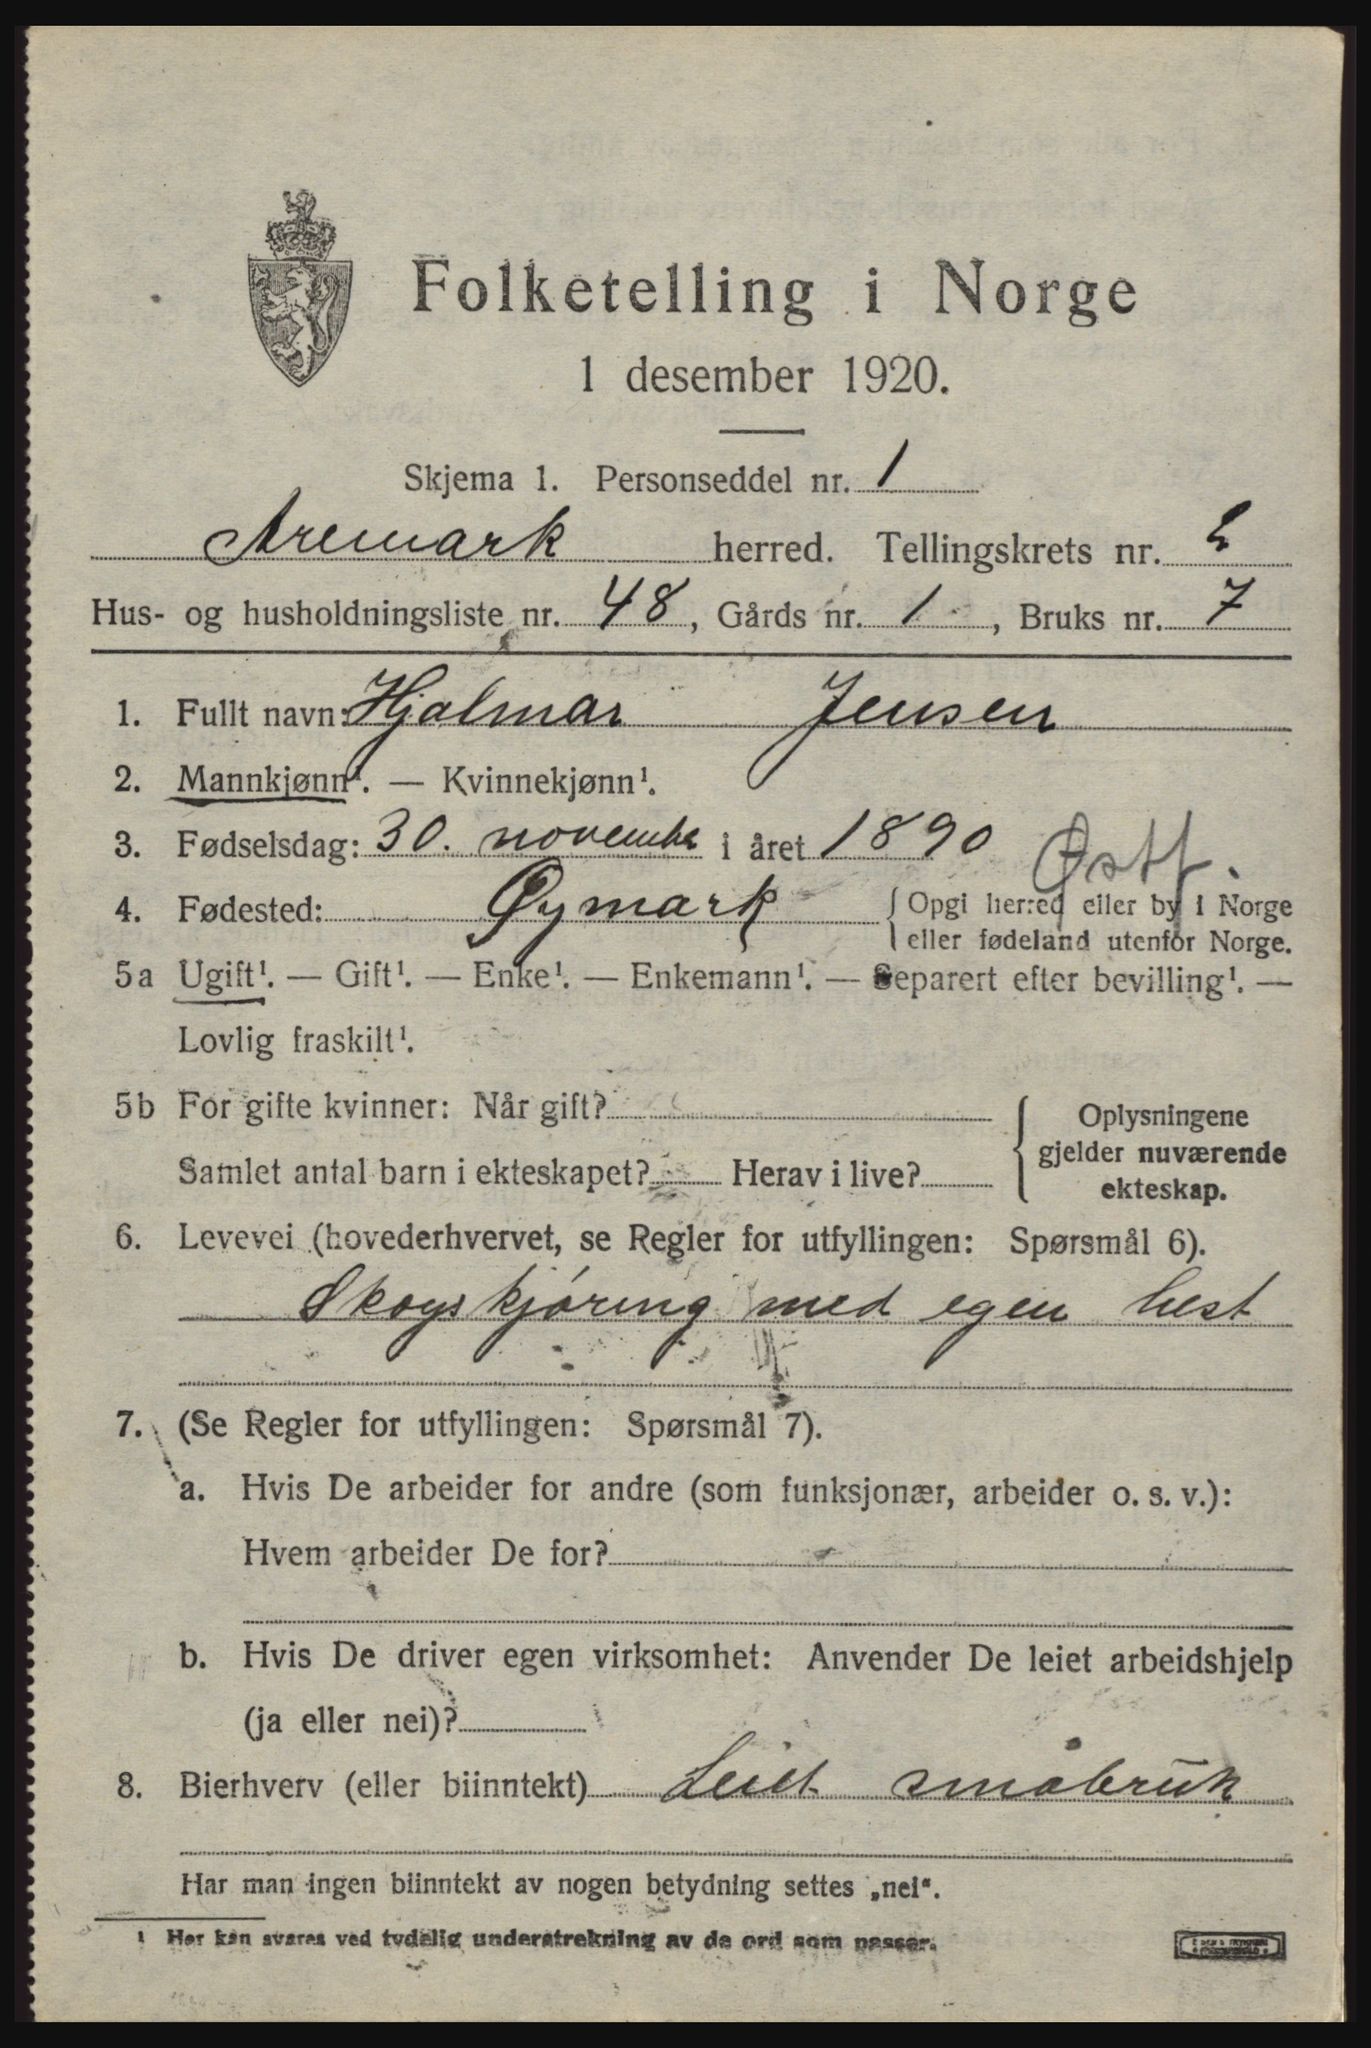 Folketelling i Norge
1 desember 1920.
Skjema 1. Personseddel nr. 1
Aremark herred. Tellingskrets nr. 2
Hus- og husholdningsliste nr. 48, Gårds nr. 1, Bruks nr. 7
1. Fullt navn: Hjalmar Jensen
2. Mannkjønn¹. — Kvinnekjønn¹.
3. Fødselsdag: 30. novembe i året 1890
Østf.
4. Fødested: Øymark { Opgi herred eller by i Norge
eller fødeland utenfor Norge.
5a Ugift¹. — Gift¹. — Enke¹. — Enkemann¹. — Separert efter bevilling¹. —
Lovlig fraskilt¹.
5b For gifte kvinner: Når gift?
Samlet antal barn i ekteskapet? Herav i live?
{ Oplysningene
gjelder nuværende
ekteskap.
6. Levevei (hovederhvervet, se Regler for utfyllingen: Spørsmål 6).
Skogskjöring med egen hest
7. (Se Regler for utfyllingen: Spørsmål 7).
a. Hvis De arbeider for andre (som funksjonær, arbeider o. s. v.):
Hvem arbeider De for?
b. Hvis De driver egen virksomhet: Anvender De leiet arbeidshjelp
(ja eller nei)?
8. Bierhverv (eller biinntekt) Leiet småbruk
Har man ingen biinntekt av nogen betydning settes „nei“.
¹ Her kan svares ved tydelig understrekning av de ord som passer.